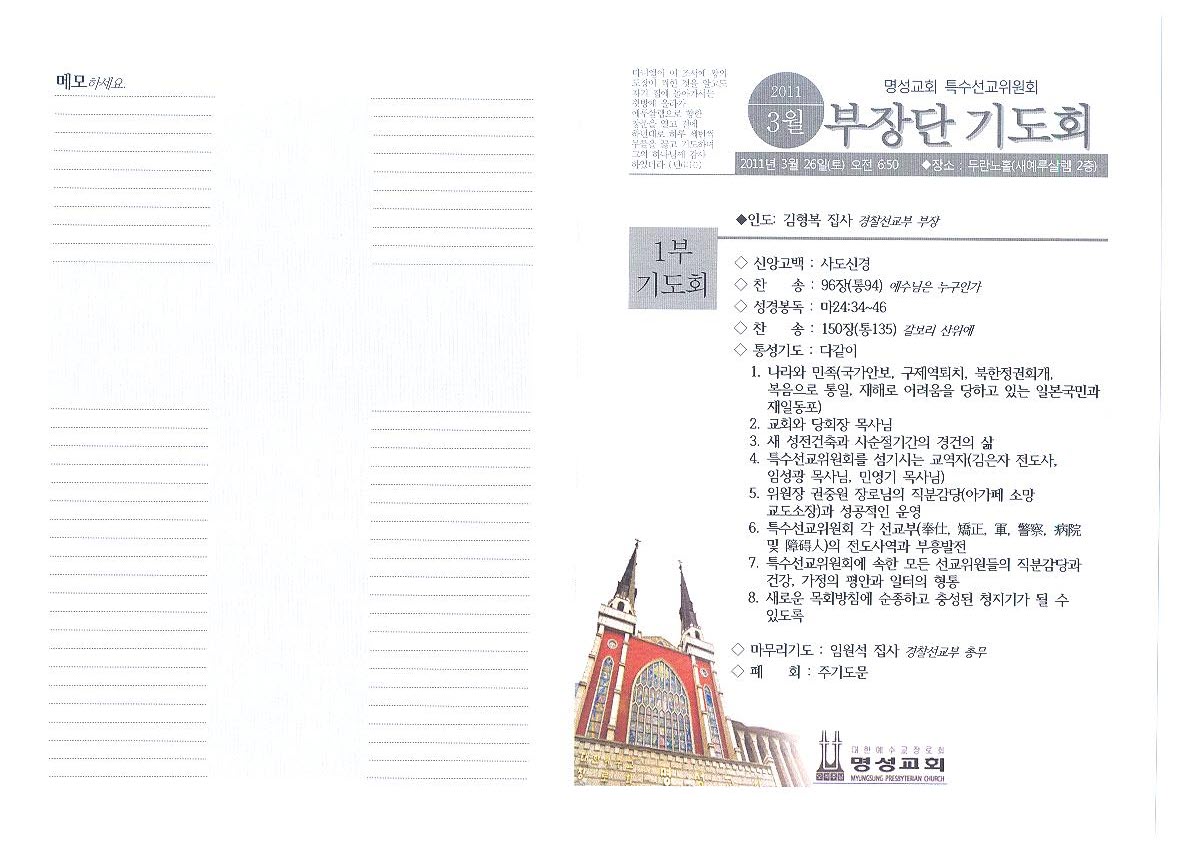 메모하세요.
다니엘이 이 조서에 왕의
도장이 찍힌 것을 알고도
자기 집에 돌아가서는
윗방에 올라가
예루살렘으로 향한
창문을 열고 전에
하던대로 하루 세번씩
무릎을 꿇고 기도하며
그의 하나님께 감사
하였더라
2011
3월
명성교회 특수선교위원회
부장단 기도회
2011년 3월 26일(토) 오전 6:50 ◆장소 : 두란노홀(새예루살렘 2층)
◆인도: 김형복 집사 경찰선교부 부장
1부
기도회
◇ 신앙고백 : 사도신경
◇ 찬 송 : 96장(통94) 예수님은 누구인가
◇ 성경봉독 : 마24:34~46
◇ 찬 송 : 150장(통135) 갈보리 산위에
◇ 통성기도 : 다같이
1. 나라와 민족(국가안보, 구제역퇴치, 북한정권회개,
복음으로 통일, 재해로 어려움을 당하고 있는 일본국민과
재일동포)
2. 교회와 당회장 목사님
3. 새 성전건축과 사순절기간의 경건의 삶
4. 특수선교위원회를 섬기시는 교역자(김은자 전도사,
임성광 목사님, 민영기 목사님)
5. 위원장 권중원 장로님의 직분감당(아가페 소망
교도소장)과 성공적인 운영
6. 특수선교위원회 각 선교부(奉仕, 矯正, 軍, 警察, 病院
및 障碍人)의 전도사역과 부흥발전
7. 특수선교위원회에 속한 모든 선교위원들의 직분감당과
건강, 가정의 평안과 일터의 형통
8. 새로운 목회방침에 순종하고 충성된 청지기가 될 수
있도록
◇ 마무리기도 : 임원석 집사 경찰선교부 총무
◇ 폐 회 : 주기도문
대한예수교장로회
명성교회
MYUNGSUNG PRESBYTERIAN CHURCH